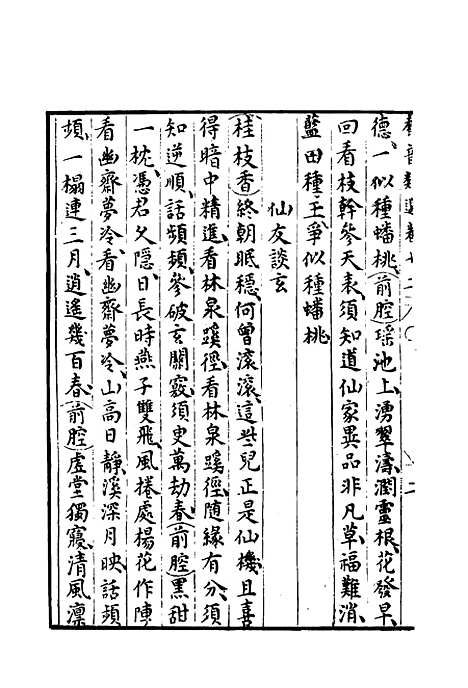 德一似種蟠桃前腔瑶池上湧翠濤潤靈根花發早
回看枝幹參天表須知道仙家異品非凡草福難消
藍田種玉爭似種蟠桃
仙友談玄
桂枝香終朝眠穩何曾滾滾這些兒正是仙機且喜
得暗中精進看林泉蹊徑看林泉蹊徑隨緣有分須
知逆順話頻頻參破玄關竅須臾萬劫春前腔黑甜
一枕憑君久隱日長時燕子雙飛風捲處楊花作陣
看幽齋夢冷看幽齋夢冷山高日靜溪深月映話頻
頻一榻連三月逍遙幾百春前腔虛堂獨寢清風凛